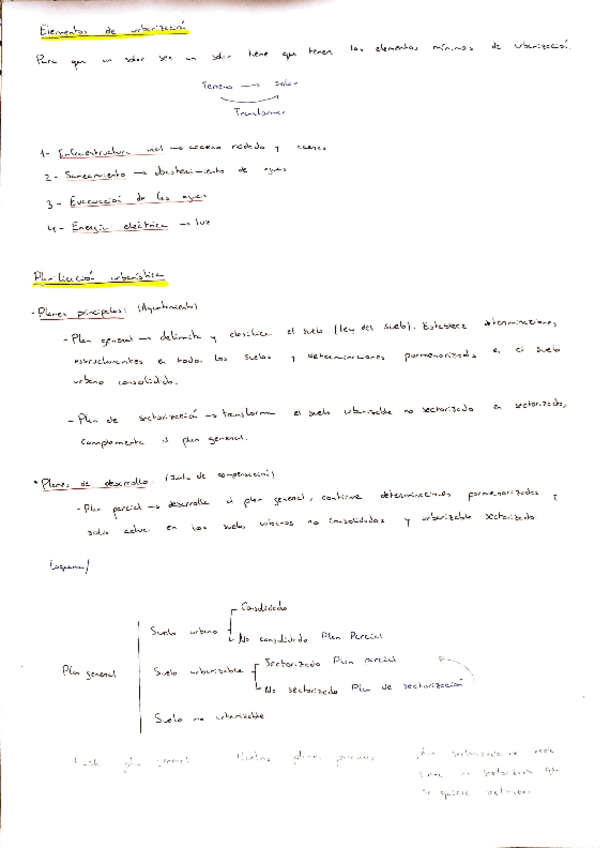 Elementos de urbanización
Para que un solar sea un solar tiene que tener los elementos mínimos de urbanización.
Terreno → Solar
Transformar
1- Infraestructura vial → acceso rodado y aceras
2- Saneamiento → abastecimiento de aguas
3- Evacuación de las aguas
4- Energía eléctrica → luz
Planificación urbanística
- Planes principales: (Ayuntamiento)
- Plan general → delimita y clasifica el suelo (ley del suelo). Establece determinaciones
estructurantes en todos los suelos y determinaciones pormenorizadas en el suelo
urbano consolidado.
- Plan de sectorización → transforma el suelo urbanizable no sectorizado en sectorizado,
complementa el plan general.
• Planes de desarrollo (Junta de compensación)
- Plan parcial → desarrolla el plan general, contiene determinaciones pormenorizadas y
solo actúa en los suelos urbanos no consolidados y urbanizable sectorizado
Esquema/
Consolidado
Suelo urbano
No consolidado Plan Parcial
Plan general
Sectorizado Plan parcial
Suelo urbanizable
No sectorizado Plan de sectorización
Suelo no urbanizable
plan general planes parciales
se quiere